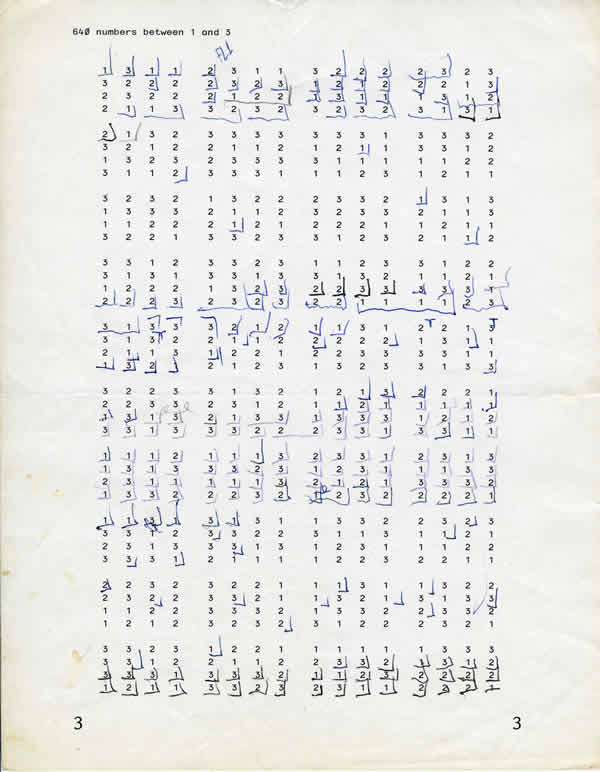 640 numbers between 1 and 3
1 3 1 1 2 3 1 1 3 2 2 2 2 3 2 3
3 2 2 2 2 3 2 3 2 2 1 3
2 3 2 2 2 1 2 2 1 3 1 1 1 2
2 1 1 3 3 2 3 2 2 3 3 2 3 1 3 1
2 1 3 2 3 3 3 3 3 3 3 3 3 3 3 2
3 2 1 2 2 1 1 2 1 2 1 1 3 1 1 2
1 3 2 3 2 3 3 3 3 1 3 1 1 1 1 2
3 1 1 2 3 2 3 3 1 1 2 3 1 1 2 2
3 2 3 2 1 3 2 2 2 3 3 2 1 3 1 3
1 3 3 3 2 1 1 2 3 2 3 3 2 1 1 3
1 1 2 2 2 1 2 2 2 1 1 2
3 2 2 1 3 3 2 3 3 1 2 3 1 2 1 2
3 3 1 2 3 3 1 2 3 1 1 2 3 1 2 2
3 1 3 1 3 3 1 3 3 1 3 2 1 1 2 1
1 1 1 2 1 3 2 3 2 2 3 3 3 1
2 2 2 3 2 3 2 3 2 2 1 1 1 1 2 3
3 1 3 3 3 2 1 2 1 1 3 1 2 2 1 3
3 1 3 2 2 1 1 2 2 2 2 2 1 3 1 1
2 1 1 3 1 2 2 2 2 3 3 3 3 1 1 1
1 3 2 1 2 2 1 3 1 3 2 3 3 1 3 3
3 2 2 3 3 1 3 2 1 2 1 3 2 2 2 1
2 2 3 3 2 3 1 2 1 1 2 1 1 2 1 1
1 3 1 3 2 1 3 3 3 3 3 3 2 1 1
3 3 1 3 3 3 2 2 2 3 3 1 3 3 1 1
1 1 1 2 1 1 1 3 2 3 3 3 2 3 1 3
1 3 3 1 1 3 2 3 1 1 3 1 2 3 1 2
2 1 3 1 1 1 1 3 2 1 2 3 2 3 3 2
1 3 3 2 2 2 3 2 1 2 3 2 3 2 2 1
1 1 3 1 3 1 3 1 1 3 3 2 2 3 2 3
3 3 3 1 2 3 1 3 1 2 2 3 3 1 1 2
2 3 1 3 3 3 1 3 1 1 2 3 1 2 2 3
3 3 3 1 2 1 1 1 1 1 2 2 1 2 3 2
2 2 3 2 3 2 2 1 1 1 3 1 1 3 2 2
2 3 2 2 3 3 2 3 1 3 2 1 3 1 3 3
1 1 2 2 3 3 3 2 1 3 1 2 2 3 3 2
3 1 2 2 3 2 3 2 3 1 2 1 3 2 2 1
3 3 2 3 1 2 2 1 3 1 1 3 3 1 3 2
3 3 1 2 2 1 1 2 2 1 3 2 1 3 1 2
3 3 1 1 3 3 3 3 1 3 1 1 2 2 2 2
1 2 1 1 3 3 2 3 2 3 1 1 2 2 2 1
3 3